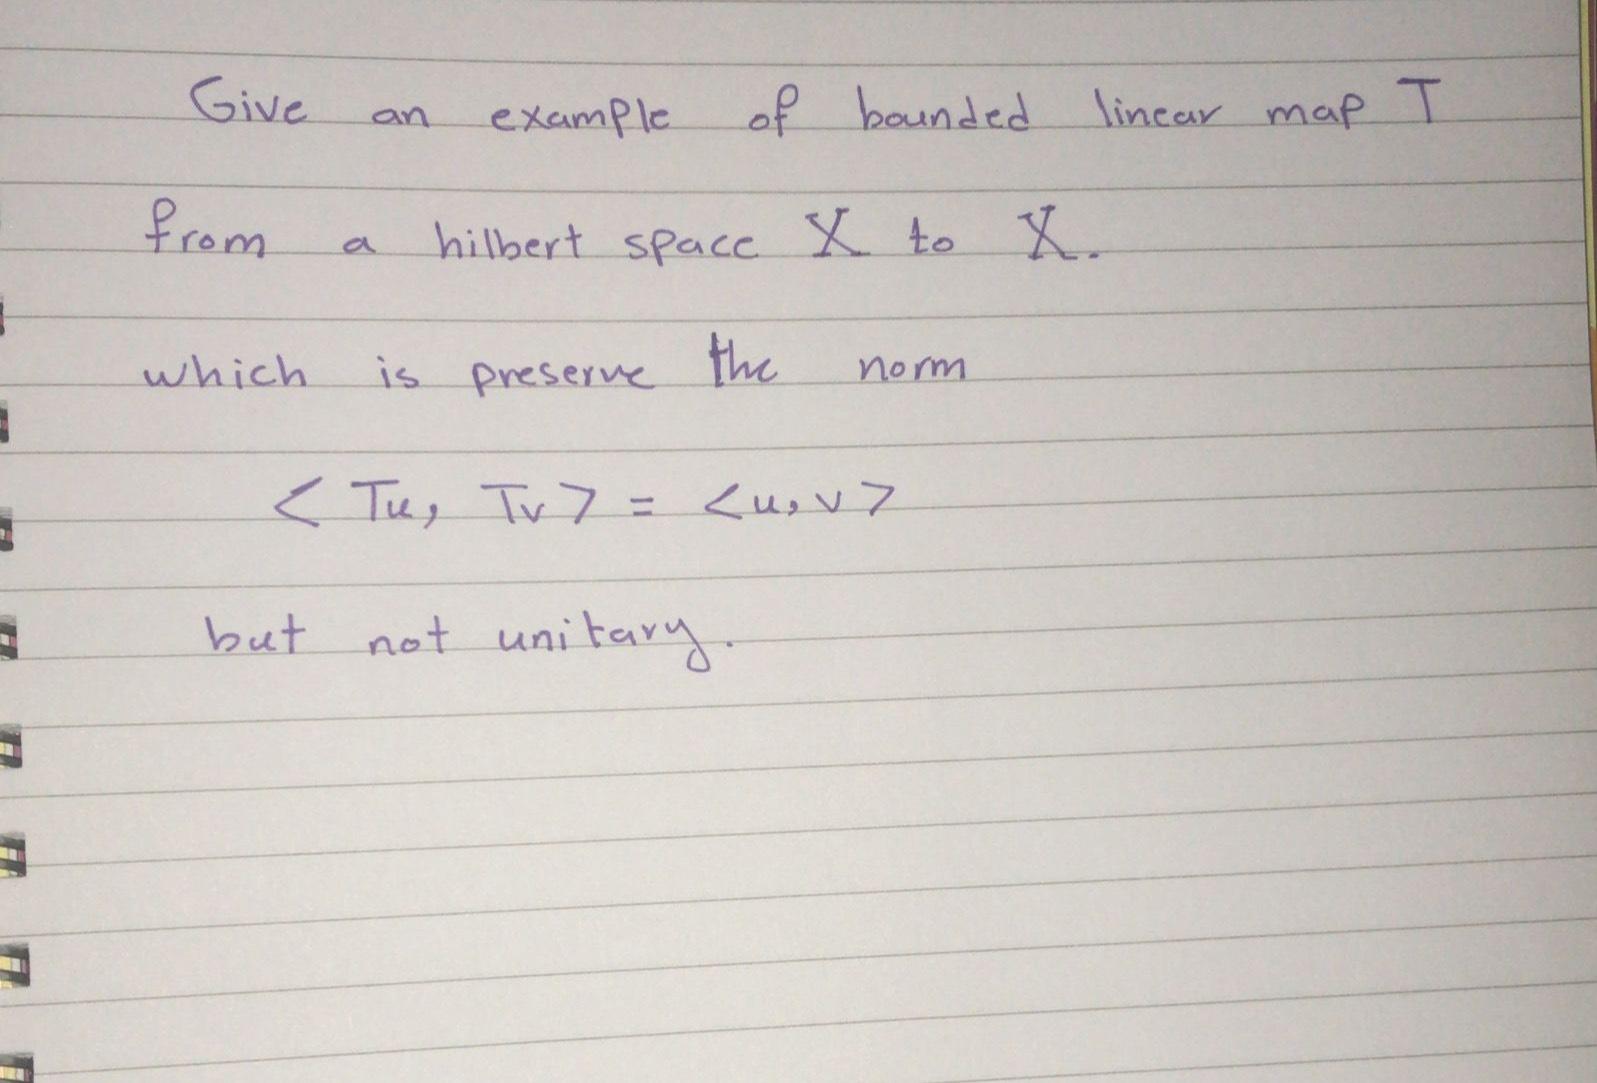 Give an example of bounded linear map T
from a hilbert space X to X.
which is preserve the norm
< Tu, Tv > = <u, v >
but not unitary.